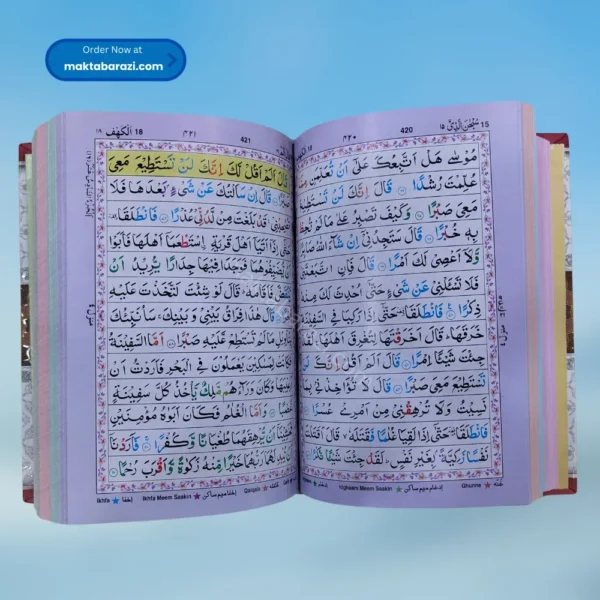 Order Now at
maktabarazi.com
15 سُبْحٰنَ الَّذِیْۤ ١٥
420
٤٢٠
مُوْسٰى هَلْ اَتَّبِعُكَ عَلٰۤى اَنْ تُعَلِّمَنِ
عُلِّمْتَ رُشْدًا قَالَ اِنَّكَ لَنْ تَسْتَطِيْعَ
مَعِىَ صَبْرًا وَكَيْفَ تَصْبِرُ عَلٰى مَا لَمْ تُحِطْ
بِهٖ خُبْرًا قَالَ سَتَجِدُنِىْۤ اِنْ شَآءَ اللّٰهُ
وَّلَاۤ اَعْصِىْ لَكَ اَمْرًا قَالَ فَاِنِ اتَّبَعْتَنِىْ
فَلَا تَسْـَٔلْنِىْ عَنْ شَىْءٍ حَتّٰۤى اُحْدِثَ لَكَ مِنْهُ
ذِكْرًا فَانْطَلَقَا حَتّٰۤى اِذَا رَكِبَا فِى السَّفِيْنَةِ
خَرَقَهَا قَالَ اَخَرَقْتَهَا لِتُغْرِقَ اَهْلَهَا
جِئْتَ شَيْـًٔا اِمْرًا قَالَ اَلَمْ اَقُلْ اِنَّكَ لَنْ
تَسْتَطِيْعَ مَعِىَ صَبْرًا قَالَ لَا تُؤَاخِذْنِىْ بِمَا
نَسِيْتُ وَلَا تُرْهِقْنِىْ مِنْ اَمْرِىْ عُسْرًا
فَانْطَلَقَا حَتّٰۤى اِذَا لَقِيَا غُلٰمًا فَقَتَلَهٗ قَالَ اَقَتَلْتَ
نَفْسًا زَكِيَّةً بِغَيْرِ نَفْسٍ لَقَدْ جِئْتَ شَيْـًٔا نُّكْرًا
Ghunna غنه
Idghaam Meem Saakin ادغام ميم ساكن
421
٤٢١
18 اَلْكَهْف ١٨
قَالَ اَلَمْ اَقُلْ لَّكَ اِنَّكَ لَنْ تَسْتَطِيْعَ مَعِىَ
صَبْرًا قَالَ اِنْ سَاَلْتُكَ عَنْ شَىْءٍۢ بَعْدَهَا فَلَا
تُصٰحِبْنِىْ قَدْ بَلَغْتَ مِنْ لَّدُنِّىْ عُذْرًا فَانْطَلَقَا
حَتّٰۤى اِذَاۤ اَتَيَاۤ اَهْلَ قَرْيَةِ اِۨسْتَطْعَمَاۤ اَهْلَهَا فَاَبَوْا
يُّضَيِّفُوْهُمَا فَوَجَدَا فِيْهَا جِدَارًا يُّرِيْدُ اَنْ
يَّنْقَضَّ فَاَقَامَهٗ قَالَ لَوْ شِئْتَ لَتَّخَذْتَ عَلَيْهِ
قَالَ هٰذَا فِرَاقُ بَيْنِىْ وَبَيْنِكَ سَاُنَبِّئُكَ
بِتَاْوِيْلِ مَا لَمْ تَسْتَطِعْ عَّلَيْهِ صَبْرًا اَمَّا السَّفِيْنَةُ
فَكَانَتْ لِمَسٰكِيْنَ يَعْمَلُوْنَ فِى الْبَحْرِ فَاَرَدْتُّ اَنْ
اَعِيْبَهَا وَكَانَ وَرَآءَهُمْ مَّلِكٌ يَّاْخُذُ كُلَّ سَفِيْنَةٍ
غَصْبًا وَاَمَّا الْغُلٰمُ فَكَانَ اَبَوٰهُ مُؤْمِنَيْنِ
فَخَشِيْنَاۤ اَنْ يُّرْهِقَهُمَا طُغْيَانًا وَّكُفْرًا فَاَرَدْنَاۤ
اَنْ يُّبْدِلَهُمَا رَبُّهُمَا خَيْرًا مِّنْهُ زَكٰوةً وَّاَقْرَبَ رُحْمًا
Ikhfa اخفا
Ikhfa Meem Saakin اخفا ميم ساكن
Qalqala قلقله